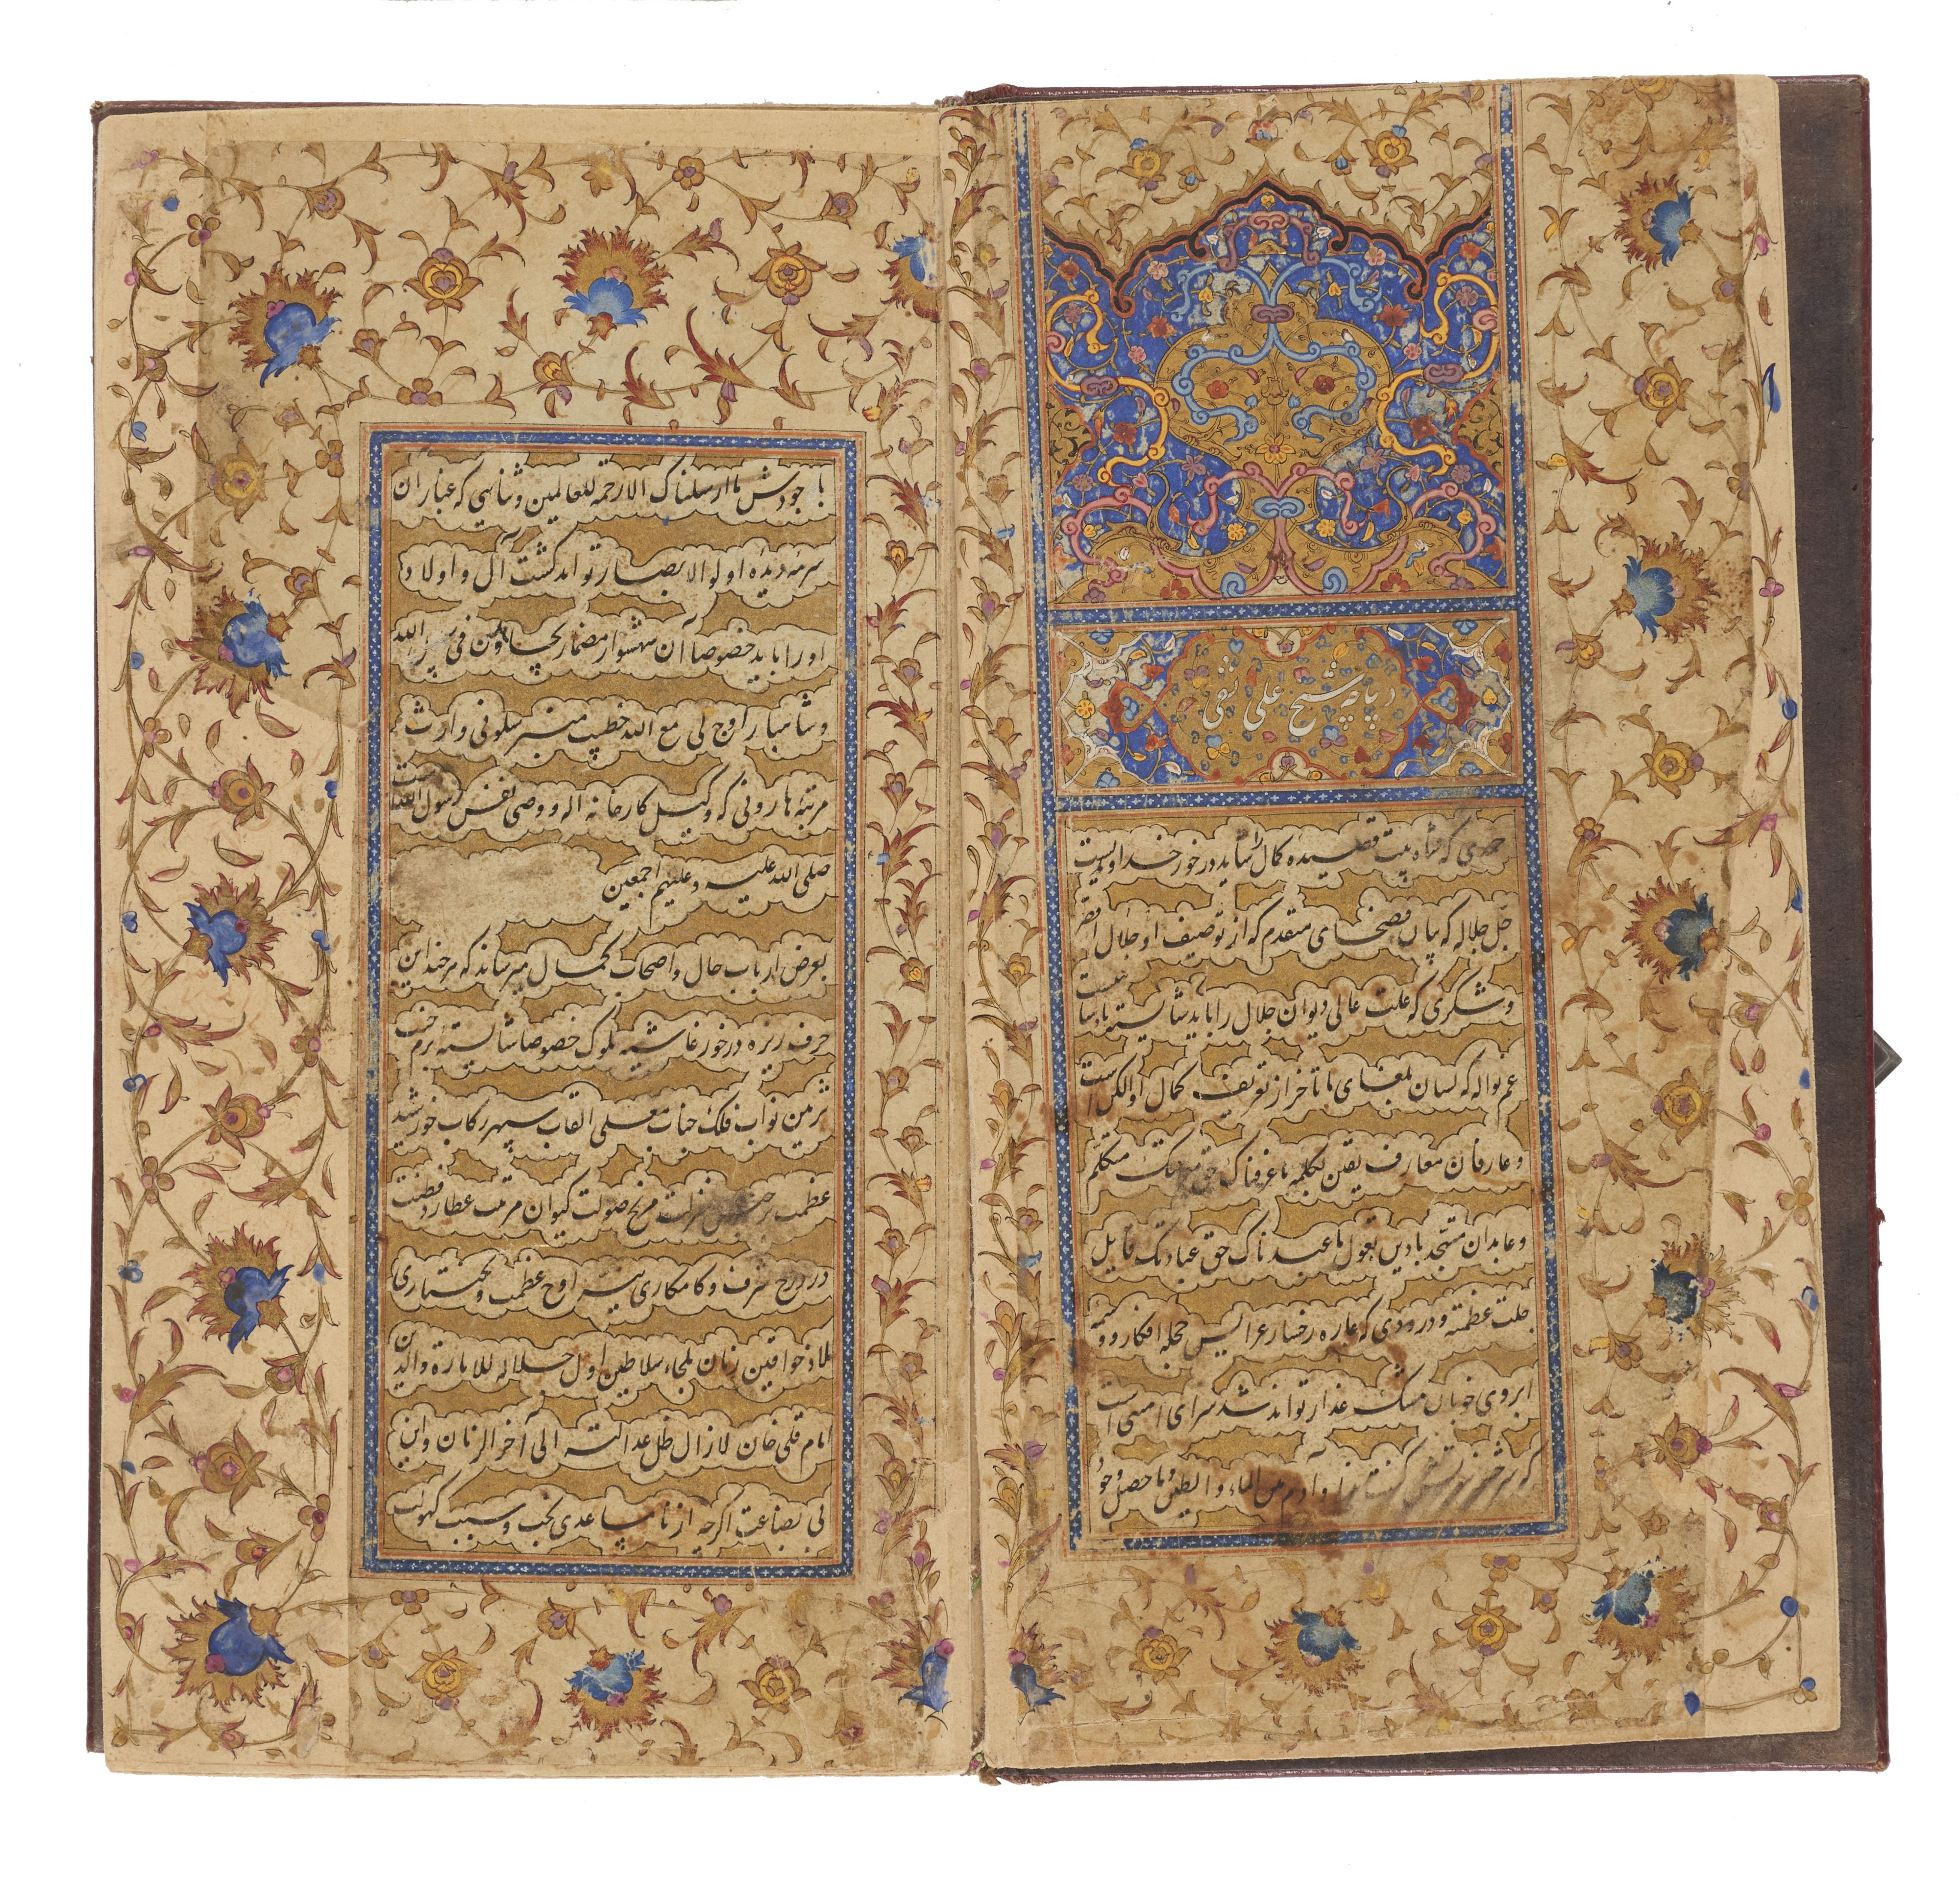 دیباچه شیخ علی نقی
حمدی که شاه بیت قصیده کمال را شاید در خور خداوندیست
جل جلاله که بیان فصحای متقدم که از توصیف او جلال
وشکری که علت عالی دیوان جلال را باید شایسته
عم نواله که لسان بلغای ما تاخر از تعریف کمال او الکن است
و عارفان معارف یقین بکلمه ما عرفناک حق معرفتک متکلم
و عابدان متهجد بادیین بقول ما عبدناک حق عبادتک قایل
جلت عظمته و درودی که غازه رخسار عرایس حجله افکار و وسمه
ابروی خوبان مشک عذار تواند شد سزای امتی است
که و آدم بین الماء و الطین و ما حصل وجود
با جودش ما ارسلناک الا رحمة للعالمین و ثنایی که غبار آن
سرمه دیده اولو الابصار تواند گشت آل و اولاد
او را باید خصوصا آن شهسوار مضمار یجاهدون فی سبیل الله
و شاهباز اوج لی مع الله خطیب منبر سلونی وارث
مرتبه هارونی که وکیل کارخانه اله و وصی نفس رسول الله است
صلی الله علیه و علیهم اجمعین
بعرض ارباب حال و اصحاب کمال میرساند که هر چند این
خرف ریزه در خور غاشیه ملوک خصوصا شایسته بزم جنت
تزیین نواب فلک جناب معلی القاب سپهر رکاب خورشید
عظمت منزلت مریخ صولت کیوان مرتبت عطارد فطنت
در درج شرف و کامکاری نیر اوج عظمت و بختیاری
ملاذ خواقین زمان ملجاء سلاطین اول جلاله للاماره والدین
امام قلی خان لا زال ظل عدالته الی آخر الزمان و این
بی بضاعت اگرچه از نامساعدی بخت و سبب کهولت